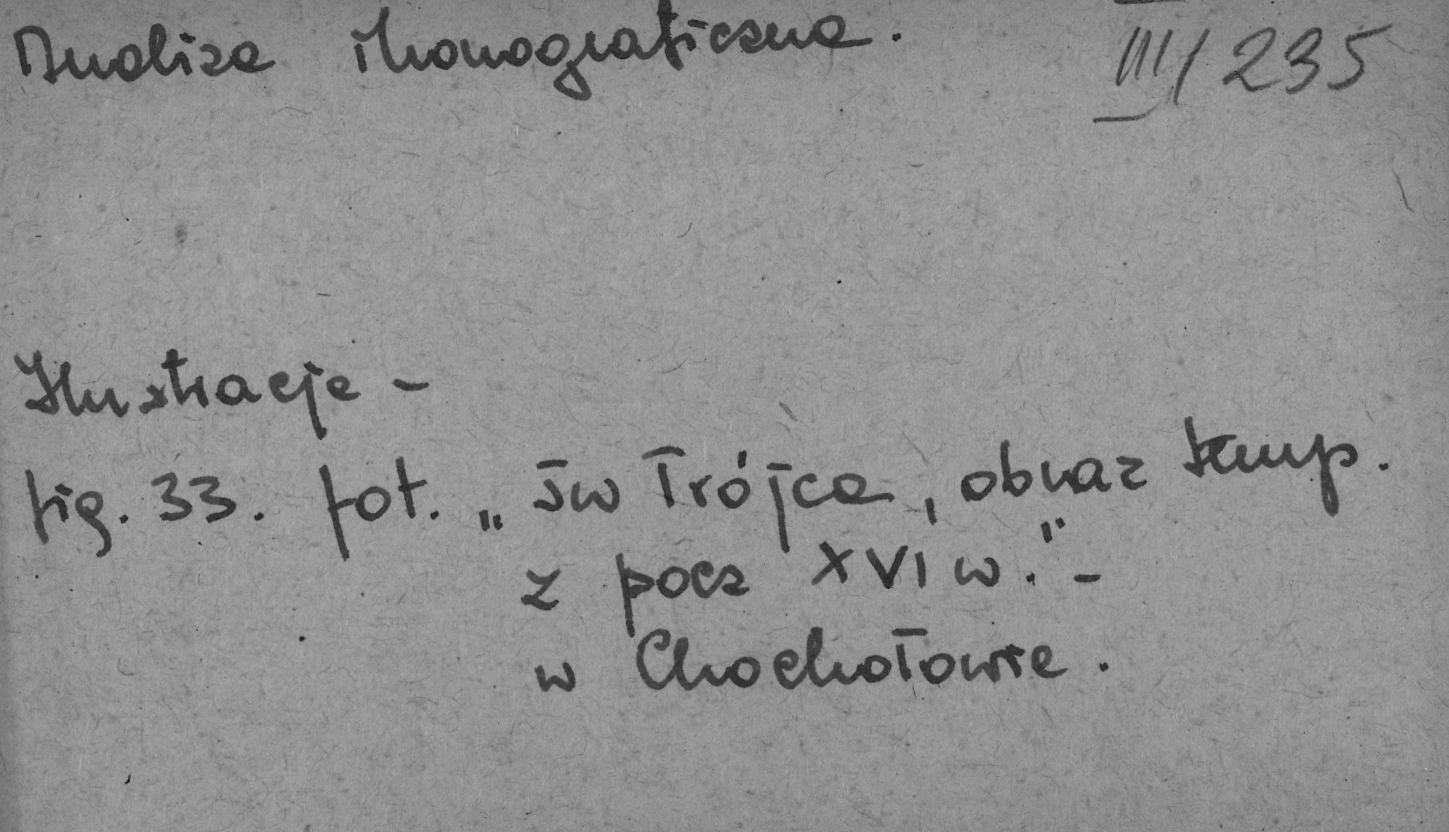 Analiza ikonograficzna. III/235
Ilustracje –
fig. 33. fot. „św Trójca, obraz temp.
z pocz XVI w." –
w Chochołowie.